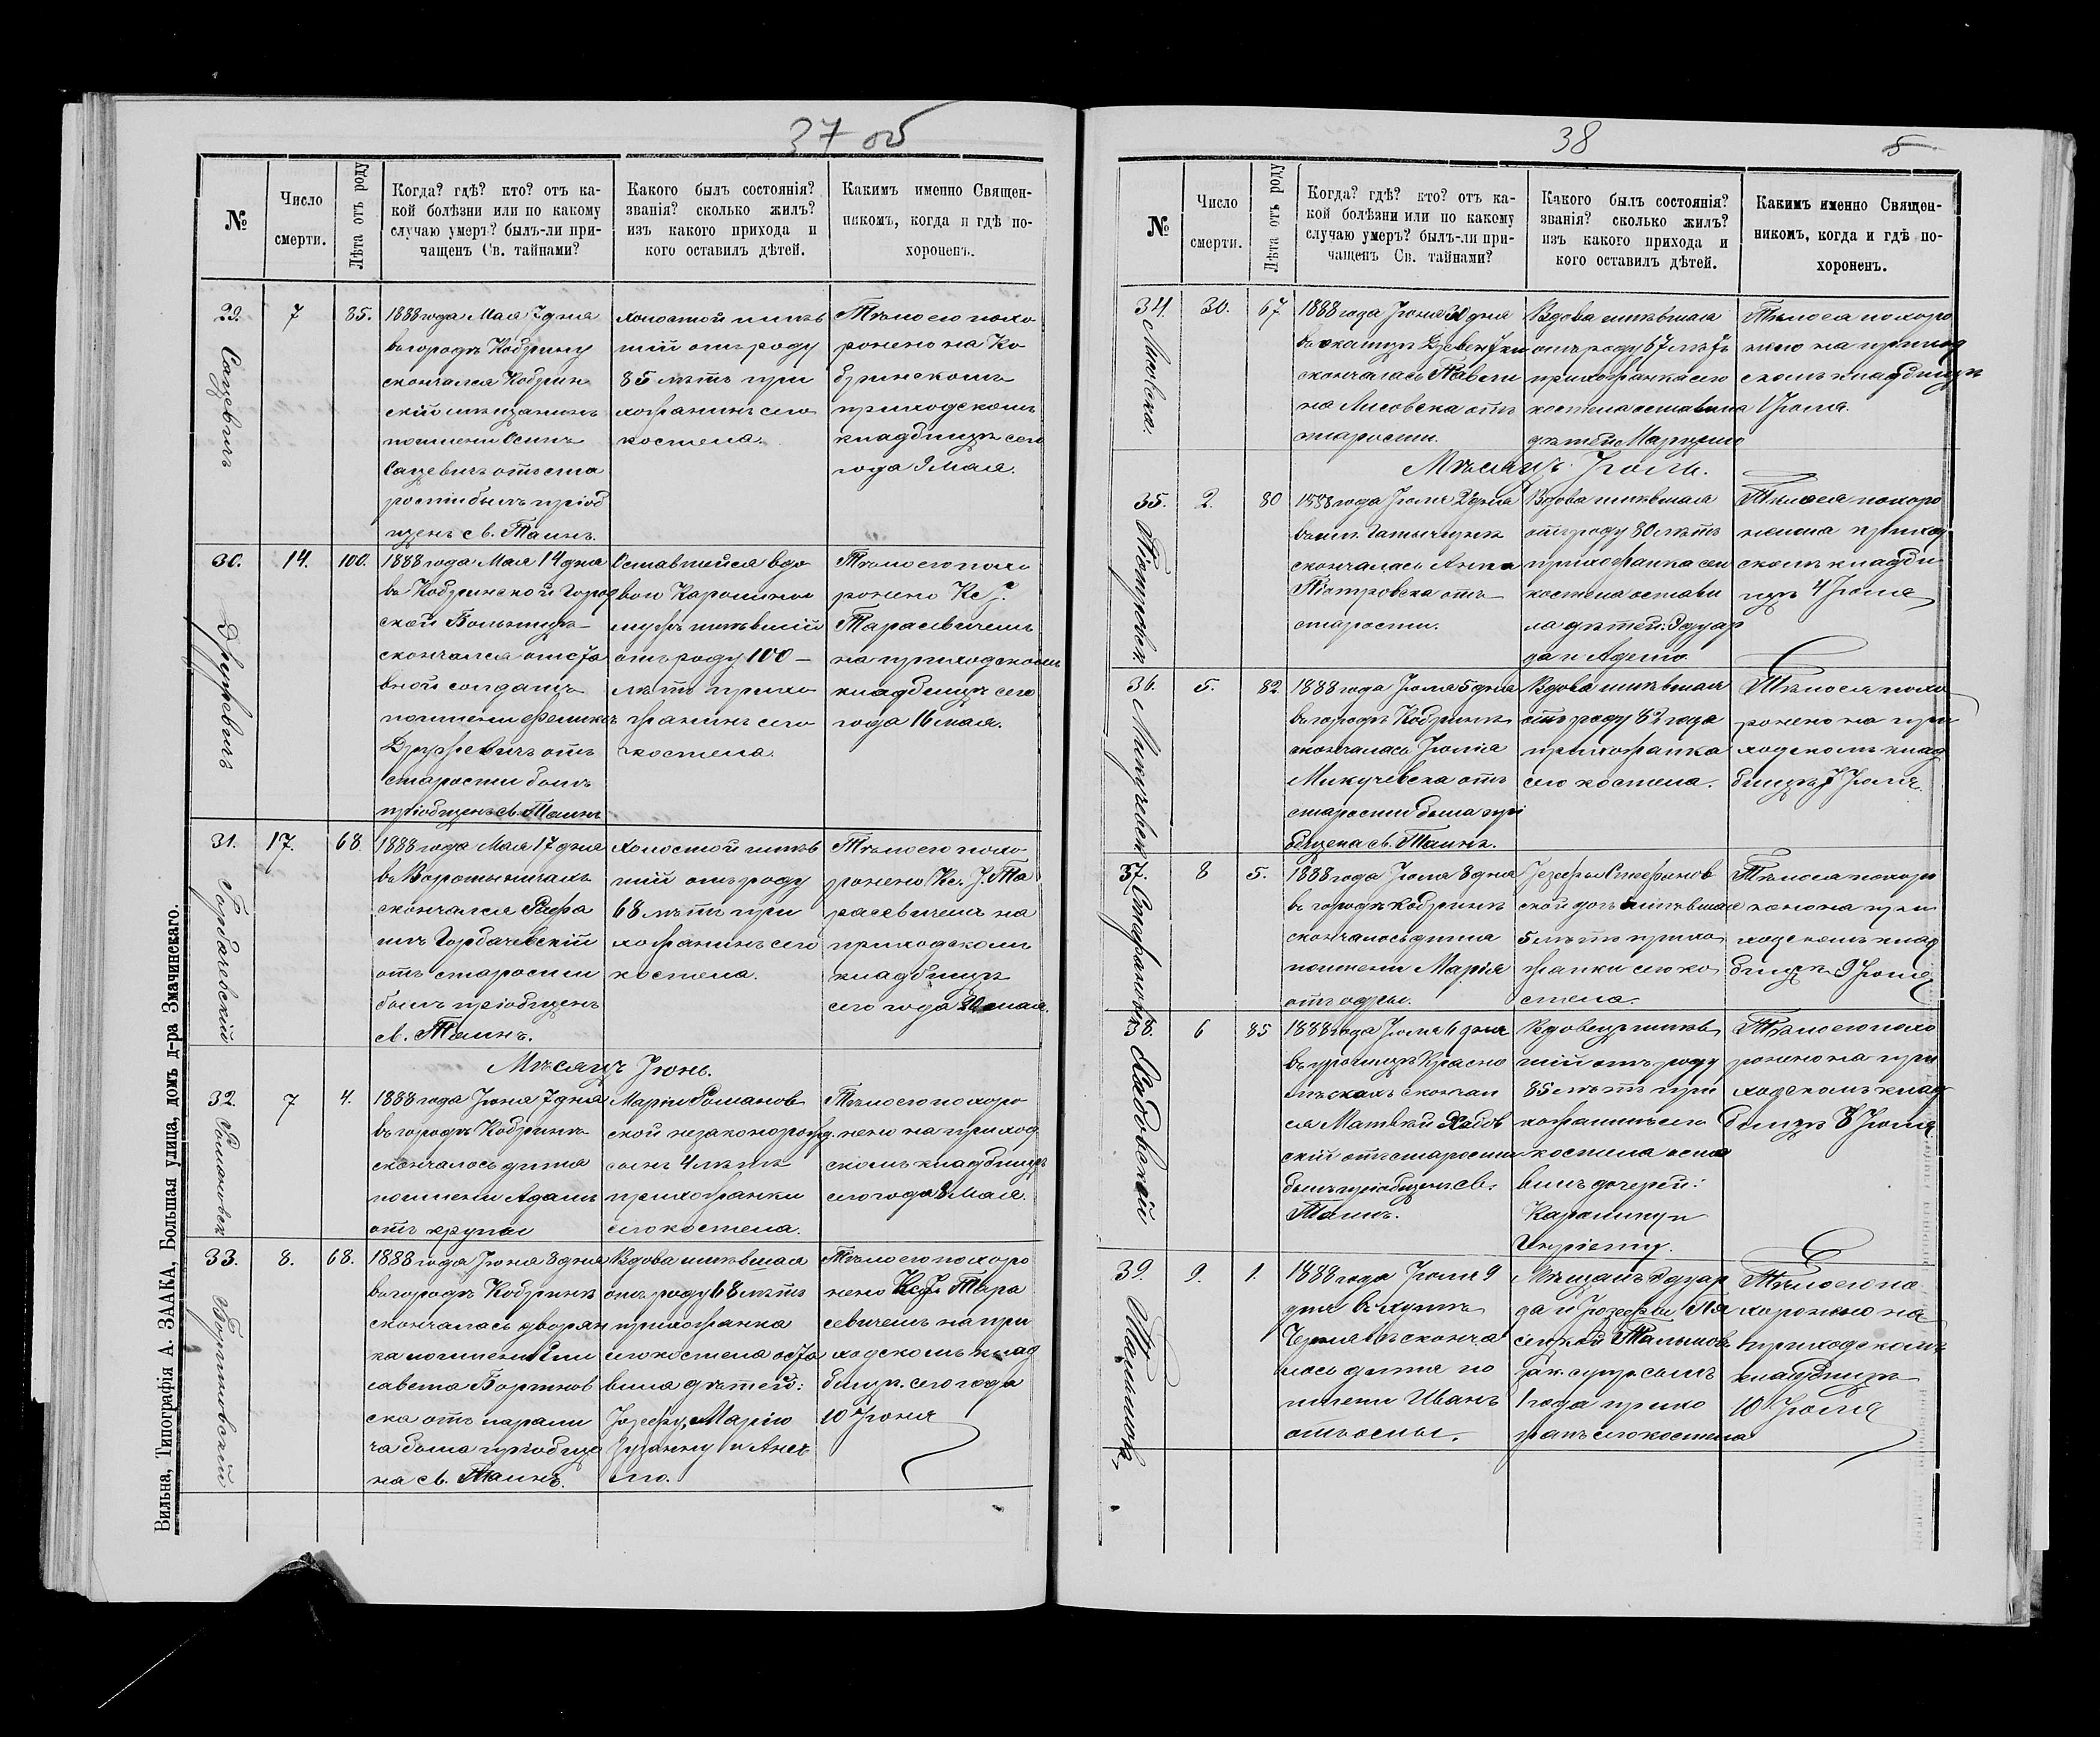 37 об
№
Число
смерти.
Лѣта отъ роду
Когда? гдѣ? кто? отъ ка-
кой болѣзни или по какому
случаю умеръ? былъ-ли при-
чащенъ Св. тайнами?
Какого былъ состоянія?
званія? сколько жилъ?
изъ какого прихода и
кого оставилъ дѣтей.
Какимъ именно Священ-
никомъ, когда и гдѣ по-
хороненъ.
29.
Сацевичъ
7
85.
1888 года Мая 7 дня
въ городѣ Кобрину
скончался Кобрин
скій мѣщанинъ
по имени Осипъ
Сацевичъ отъ ста
рости былъ пріоб
щенъ св. Таинъ.
Холостой имѣв
шій отъ роду
85 лѣтъ при
хожанинъ сего
костела.
Тѣло его похо
ронено на Ко
бринскомъ
приходскомъ
кладбищѣ сего
года 9 Мая.
30.
Дружевичъ
14.
100.
1888 года Мая 14 дня
въ Кобринской Город
ской Больницѣ
скончался отста
вной солдатъ
по имени Феликсъ
Дружевичъ отъ
старости былъ
пріобщенъ св. Таинъ
Оставшейся вдо
вой Каролиной
мужъ имѣвшій
отъ роду 100 —
лѣтъ прихо
жанинъ сего
костела.
Тѣло его похо
ронено Кс. J.
Тарасевичемъ
на приходскомъ
кладбищѣ сего
года 16 мая.
31.
Горбачевскій
17.
68
1888 года Мая 17 дня
въ Воротыничахъ
скончался Рафа
илъ Горбачевскій
отъ старости
былъ пріобщенъ
св. Таинъ.
Холостой имѣв
шій отъ роду
68 лѣтъ при
хожанинъ сего
костела.
Тѣло его похо
ронено Кс. J. Та
расевичемъ на
приходскомъ
кладбищѣ
сего года 20 мая.
Мѣсяцъ Іюнь.
32.
Романовск
7
4.
1888 года Іюня 7 дня
въ городѣ Кобринѣ
скончалось дитя
по имени Адамъ
отъ крупы
Маріи Романов
ской незаконорожд.
сынъ 4 лѣтъ
прихожанки
сего костела.
Тѣло его похоро
нено на приход
скомъ кладбищѣ
сего года 8 Мая.
33.
Бортновскій
8.
68.
1888 года Іюня 8 дня
въ городѣ Кобринѣ
скончалась дворян
ка по имени Ели
савета Бортнов
ска отъ парали
ча была пріобще
на св. Таинъ.
Вдова имѣвшая
отъ роду 68 лѣтъ
прихожанка
сего костела оста
вила дѣтей:
Іозефу, Марію
Зузанну и Анел
лю.
Тѣло его похоро
нено Кс. J. Тара
севичемъ на при
ходскомъ клад
бищѣ сего года
10 Іюня
Вильна, Типографія А. ЗААКА, Большая улица, домъ д-ра Змачинскаго.
38
5
№
Число
смерти.
Лѣта отъ роду
Когда? гдѣ? кто? отъ ка-
кой болѣзни или по какому
случаю умеръ? былъ-ли при-
чащенъ Св. тайнами?
Какого былъ состоянія?
званія? сколько жилъ?
изъ какого прихода и
кого оставилъ дѣтей.
Какимъ именно Священ-
никомъ, когда и гдѣ по-
хороненъ.
34.
Лисовска.
30.
67
1888 года Іюня 30 дня
въ околицѣ Дзевентки
скончалась Павли
на Лисовска отъ
старости.
Вдова имѣвшая
отъ роду 67 лѣтъ
прихожанка сего
костела оставила
дѣтей Марцелю
Тѣло ея похоро
нено на приход
скомъ кладбищѣ
1 Іюля.
Мѣсяцъ Іюль.
35.
Піотровск.
2.
80
1888 года Іюля 2 дня
скончалась Анна
Піотровска отъ
старости.
Вдова имѣвшая
отъ роду 80 лѣтъ
прихожанка сего
костела остави
ла дѣтей: Эдуар
да и Аделю.
Тѣло ея похоро
нено на приход
скомъ кладби
щѣ 4 Іюля
36.
Микучевск
5.
82
1888 года Іюля 5 дня
въ городѣ Кобринѣ
скончалась Юлія
Микучевска отъ
старости была прі
общена св. Таинъ.
Вдова имѣвшая
отъ роду 82 года
прихожанка
сего костела.
Тѣло ея похо
ронено на при
ходскомъ клад
бищѣ 7 Іюля.
37.
Стефановск
8
5.
1888 года Іюля 8 дня
въ городѣ Кобринѣ
скончалось дитя
по имени Марія
отъ одры.
Іозефы Стефанов
ской дочь имѣвшая
5 лѣтъ прихо
жанки сего ко
стела.
Тѣло ея похоро
нено на при
ходскомъ клад
бищѣ 9 Іюля
38.
Садовскій
6
85
1888 года Іюля 6 дня
въ урочищѣ Красно
лѣскахъ скончал
ся Матвѣй Садов
скій отъ старости
былъ пріобщенъ Св.
Таинъ.
Вдовецъ имѣв
шій отъ роду
85 лѣтъ при
хожанинъ сего
костела оста
вилъ дочерей:
Каралину и
Тѣло его похо
ронено на при
ходскомъ клад
бищѣ 8 Іюля
39.
9.
1.
1888 года Іюля 9
дня въ хуторѣ
сконча
лось дитя по
имени Иванъ
отъ оспы.
Мѣщанъ Эдуар
да и Іозефы
зак. супр. сынъ
1 года прихо
жанъ сего костела
Тѣло его по
хоронено на
приходскомъ
кладбищѣ
10 Іюля